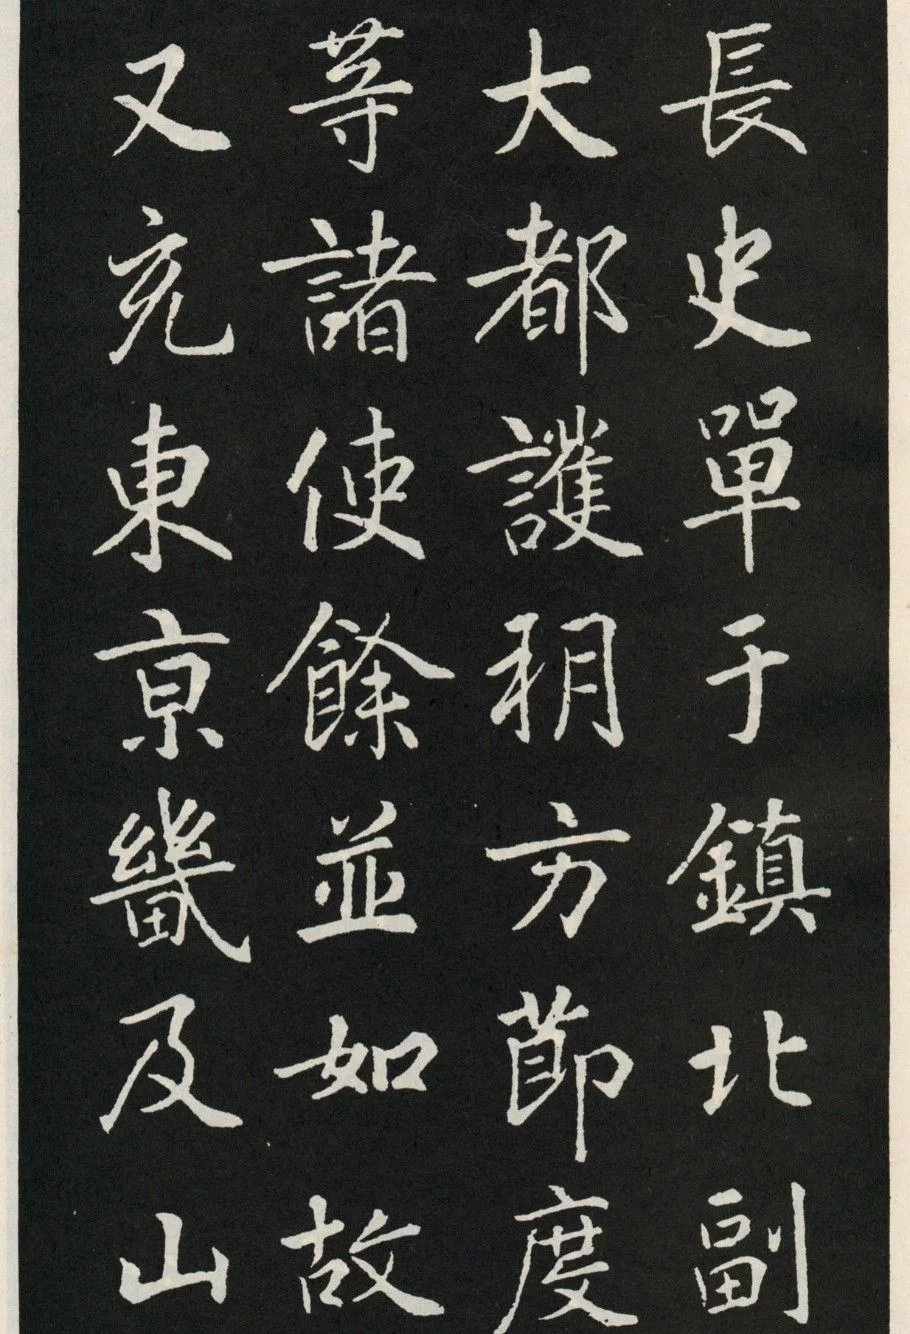 長史單于鎮北副
大都護朔方節度
等諸使餘並如故
又充東京畿及山